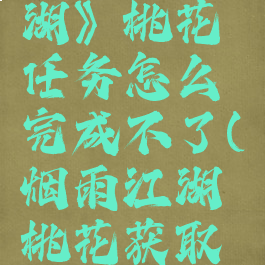 湖》桃花
任务怎么
完成不了(
烟雨江湖
桃花获取